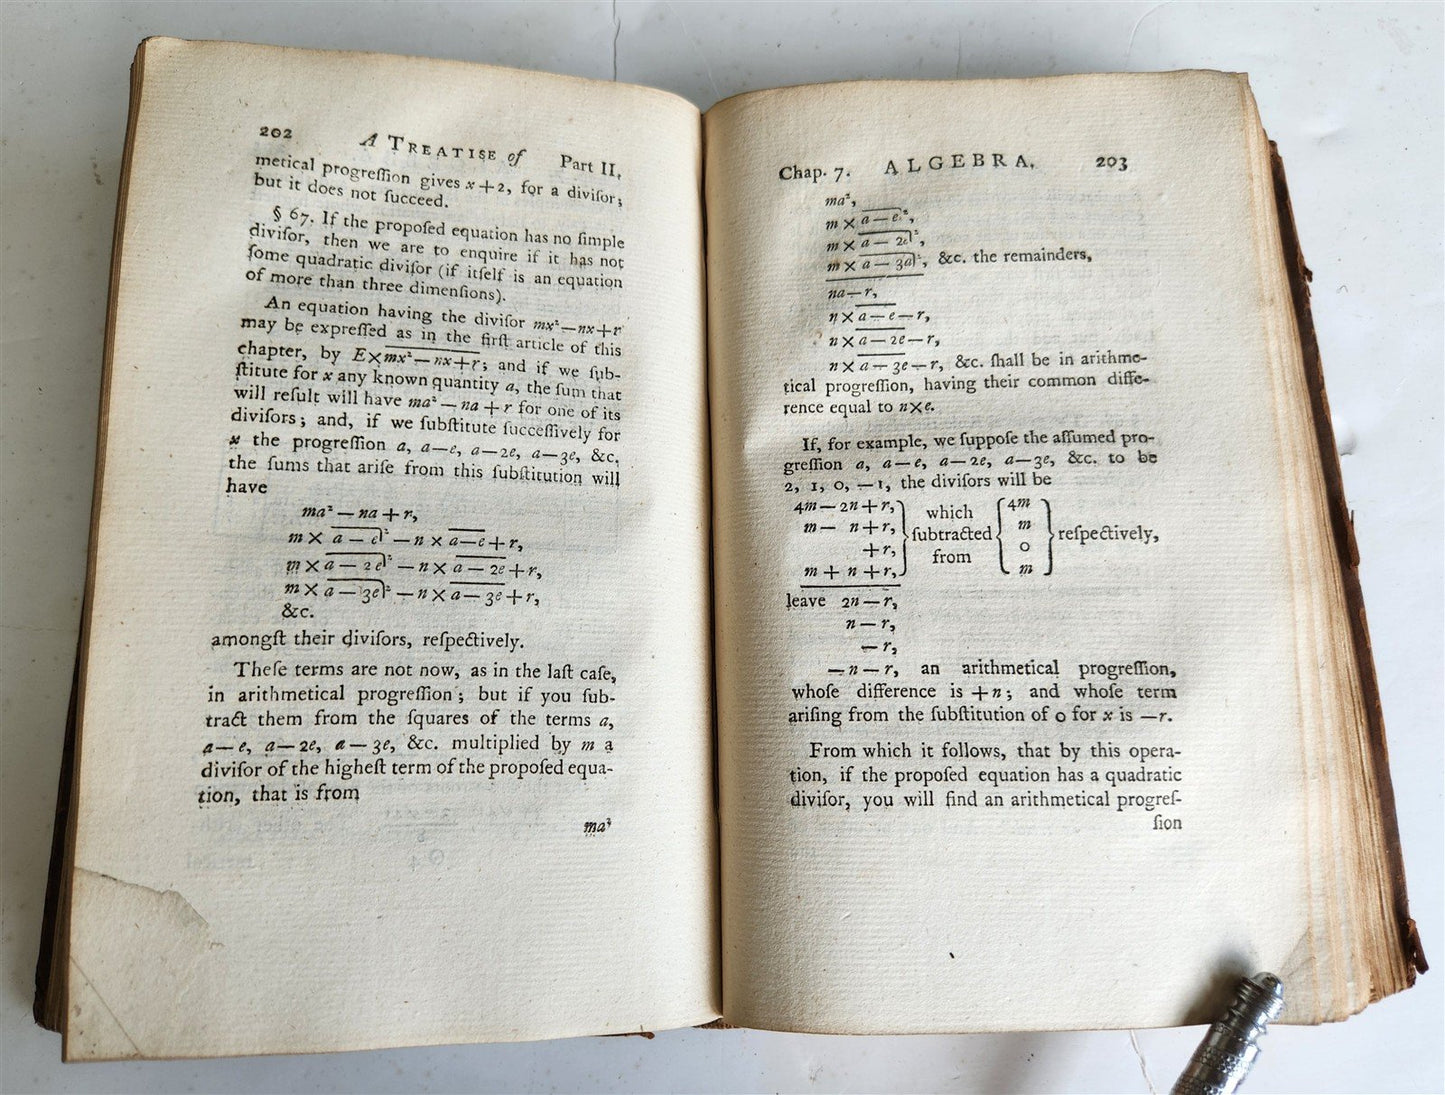 202 A TREATISE of Part II.
metical progreſſion gives x+2, for a diviſor;
but it does not ſucceed.
§ 67. If the propoſed equation has no ſimple
diviſor, then we are to enquire if it has not
ſome quadratic diviſor (if itſelf is an equation
of more than three dimenſions).
An equation having the diviſor mx²—nx+r
may be expreſſed as in the firſt article of this
chapter, by E×mx²—nx+r; and if we ſub-
ſtitute for x any known quantity a, the ſum that
will reſult will have ma²—na+r for one of its
diviſors; and, if we ſubſtitute ſucceſſively for
x the progreſſion a, a—e, a—2e, a—3e, &c.
the ſums that ariſe from this ſubſtitution will
have
ma²—na+r,
m×a—e)²—n×a—e+r,
m×a—2e)²—n×a—2e+r,
m×a—3e)²—n×a—3e+r,
&c.
amongſt their diviſors, reſpectively.
Theſe terms are not now, as in the laſt caſe,
in arithmetical progreſſion; but if you ſub-
tract them from the ſquares of the terms a,
a—e, a—2e, a—3e, &c. multiplied by m a
diviſor of the higheſt term of the propoſed equa-
tion, that is from
ma²
Chap. 7. ALGEBRA. 203
ma²,
m×a—e)²,
m×a—2e)²,
m×a—3a)², &c. the remainders,
na—r,
n×a—e—r,
n×a—2e—r,
n×a—3e—r, &c. ſhall be in arithme-
tical progreſſion, having their common diffe-
rence equal to n×e.
If, for example, we ſuppoſe the aſſumed pro-
greſſion a, a—e, a—2e, a—3e, &c. to be
2, 1, 0, —1, the diviſors will be
4m—2n+r, 4m
m— n+r, which m
+r, ſubtracted 0 reſpectively,
m+n+r, from m
leave 2n—r,
n—r,
—r,
—n—r, an arithmetical progreſſion,
whoſe difference is +n; and whoſe term
ariſing from the ſubſtitution of 0 for x is —r.
From which it follows, that by this opera-
tion, if the propoſed equation has a quadratic
diviſor, you will find an arithmetical progreſ-
ſion